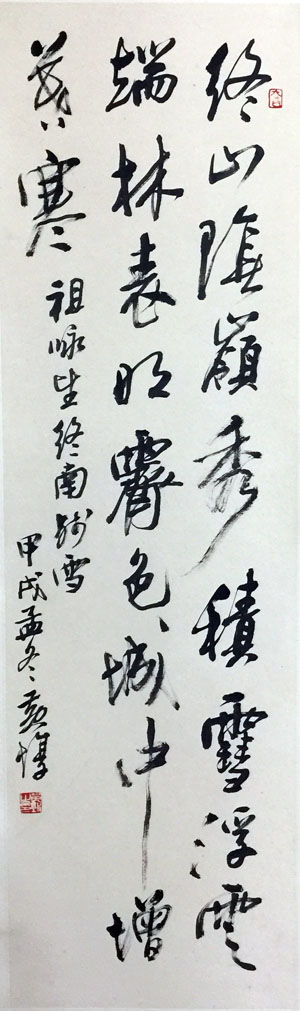 終山陰嶺秀積雪浮雲
端林表明霽色城中增
暮寒
祖咏望終南残雪
甲戌孟冬黄惇